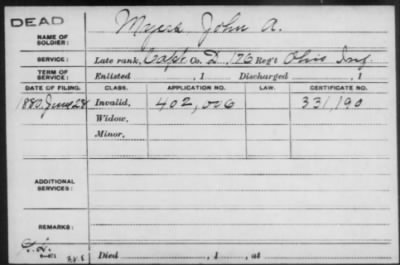 DEAD
NAME OF SOLDIER: Myers John A.
SERVICE: Late rank, Capt. Co. D, 173 Reg't Ohio Inf.
TERM OF SERVICE: Enlisted , 1 Discharged , 1
DATE OF FILING. CLASS. APPLICATION NO. LAW. CERTIFICATE NO.
1880. June 28 Invalid, 402,006 331,190
Widow,
Minor,
ADDITIONAL SERVICES:
REMARKS:
Died , 1 , at